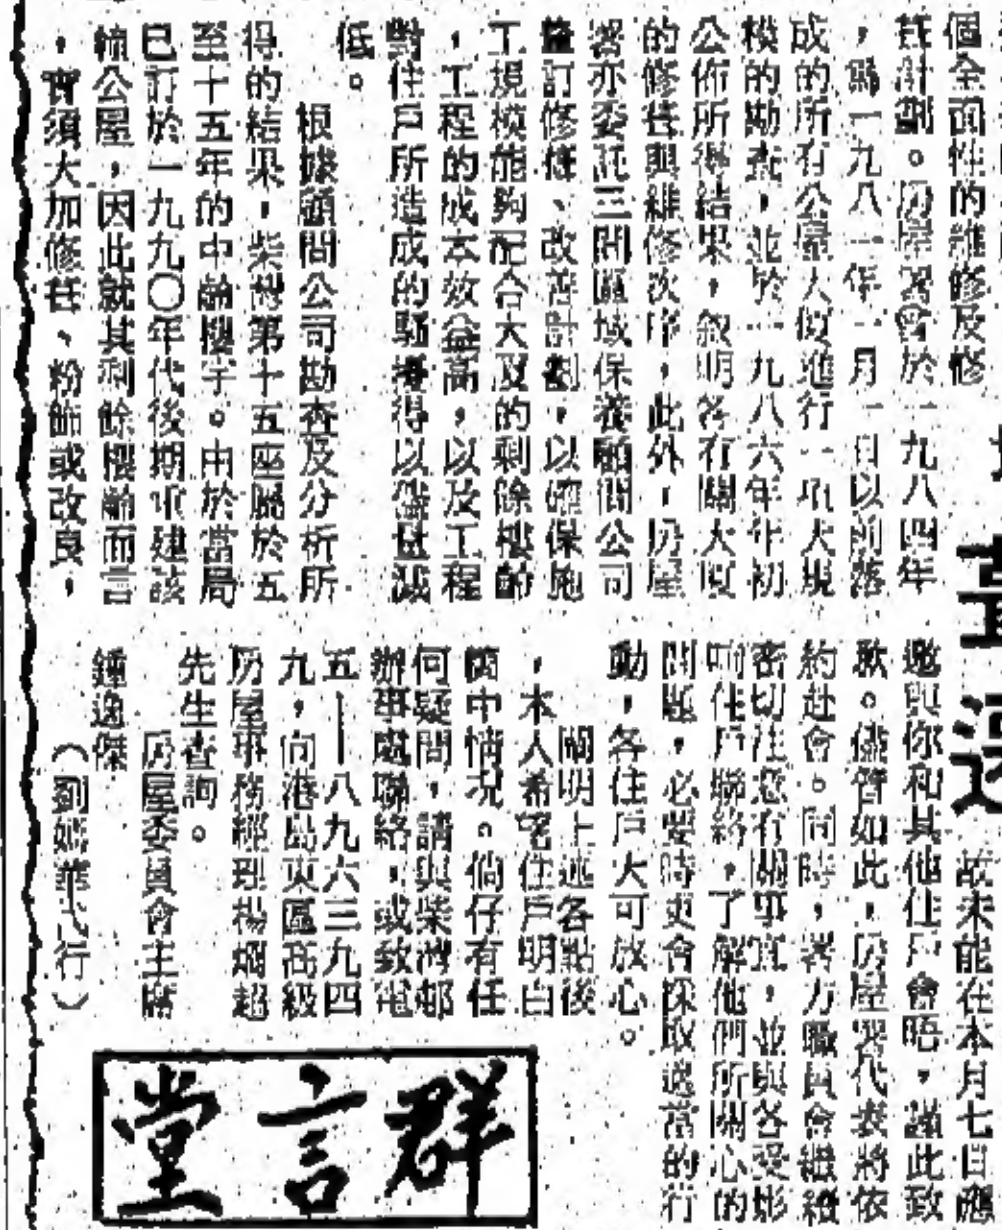 個全面性的維修及修
葺計劃。房屋署會於一九八四年
，爲一九八一年一月一日以前落
成的所有公屋大廈進行一項大規
模的勘查，並於一九八六年年初
公佈所得結果，敘明各有關大廈
的修葺與維修次序，此外，房屋
署亦委託三間區域保養顧問公司
釐訂修葺、改善計劃，以確保施
工規模能夠配合大廈的剩餘樓齡
，工程的成本效益高，以及工程
對住戶所造成的騷擾得以盡量減
低。
根據顧問公司勘查及分析所
得的結果，柴灣第十五座屬於五
至十五年的中齡樓宇。由於當局
已訂於一九九〇年代後期重建該
幢公屋，因此就其剩餘樓齡而言
，實須大加修葺、粉飾或改良，
故未能在本月七日應
邀與你和其他住戶會晤，謹此致
歉。儘管如此，房屋署代表將依
約赴會。同時，署方職員會繼續
密切注意有關事宜，並與各受影
响住戶聯絡，了解他們所關心的
問題，必要時更會採取適當的行
動，各住戶大可放心。
闡明上述各點後
，本人希望住戶明白
箇中情況。倘仔有任
何疑問，請與柴灣邨
辦事處聯絡，或致電
五—八九六三九四
九，向港島東區高級
房屋事務經理楊烱超
先生查詢。
房屋委員會主席
鍾逸傑
（劉嫣華代行）
群言堂